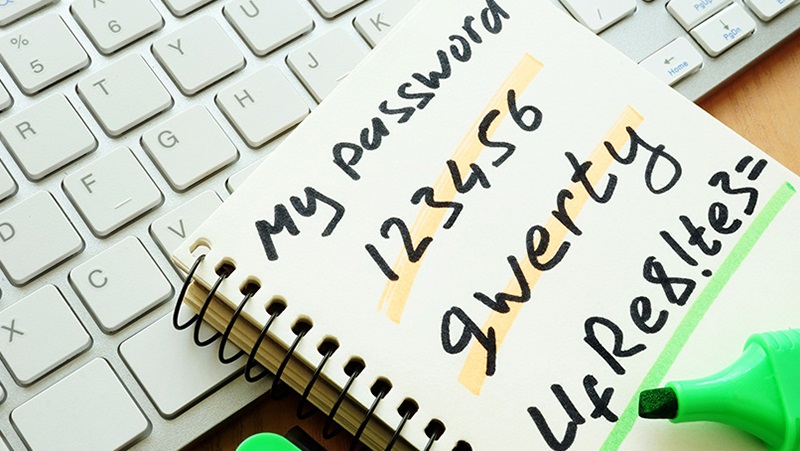 My password
123456
qwerty
UfRe8!te3=
% 5
^ 6
R T Y U
D F G H J K
X C V
PgUp
PgDn
Home